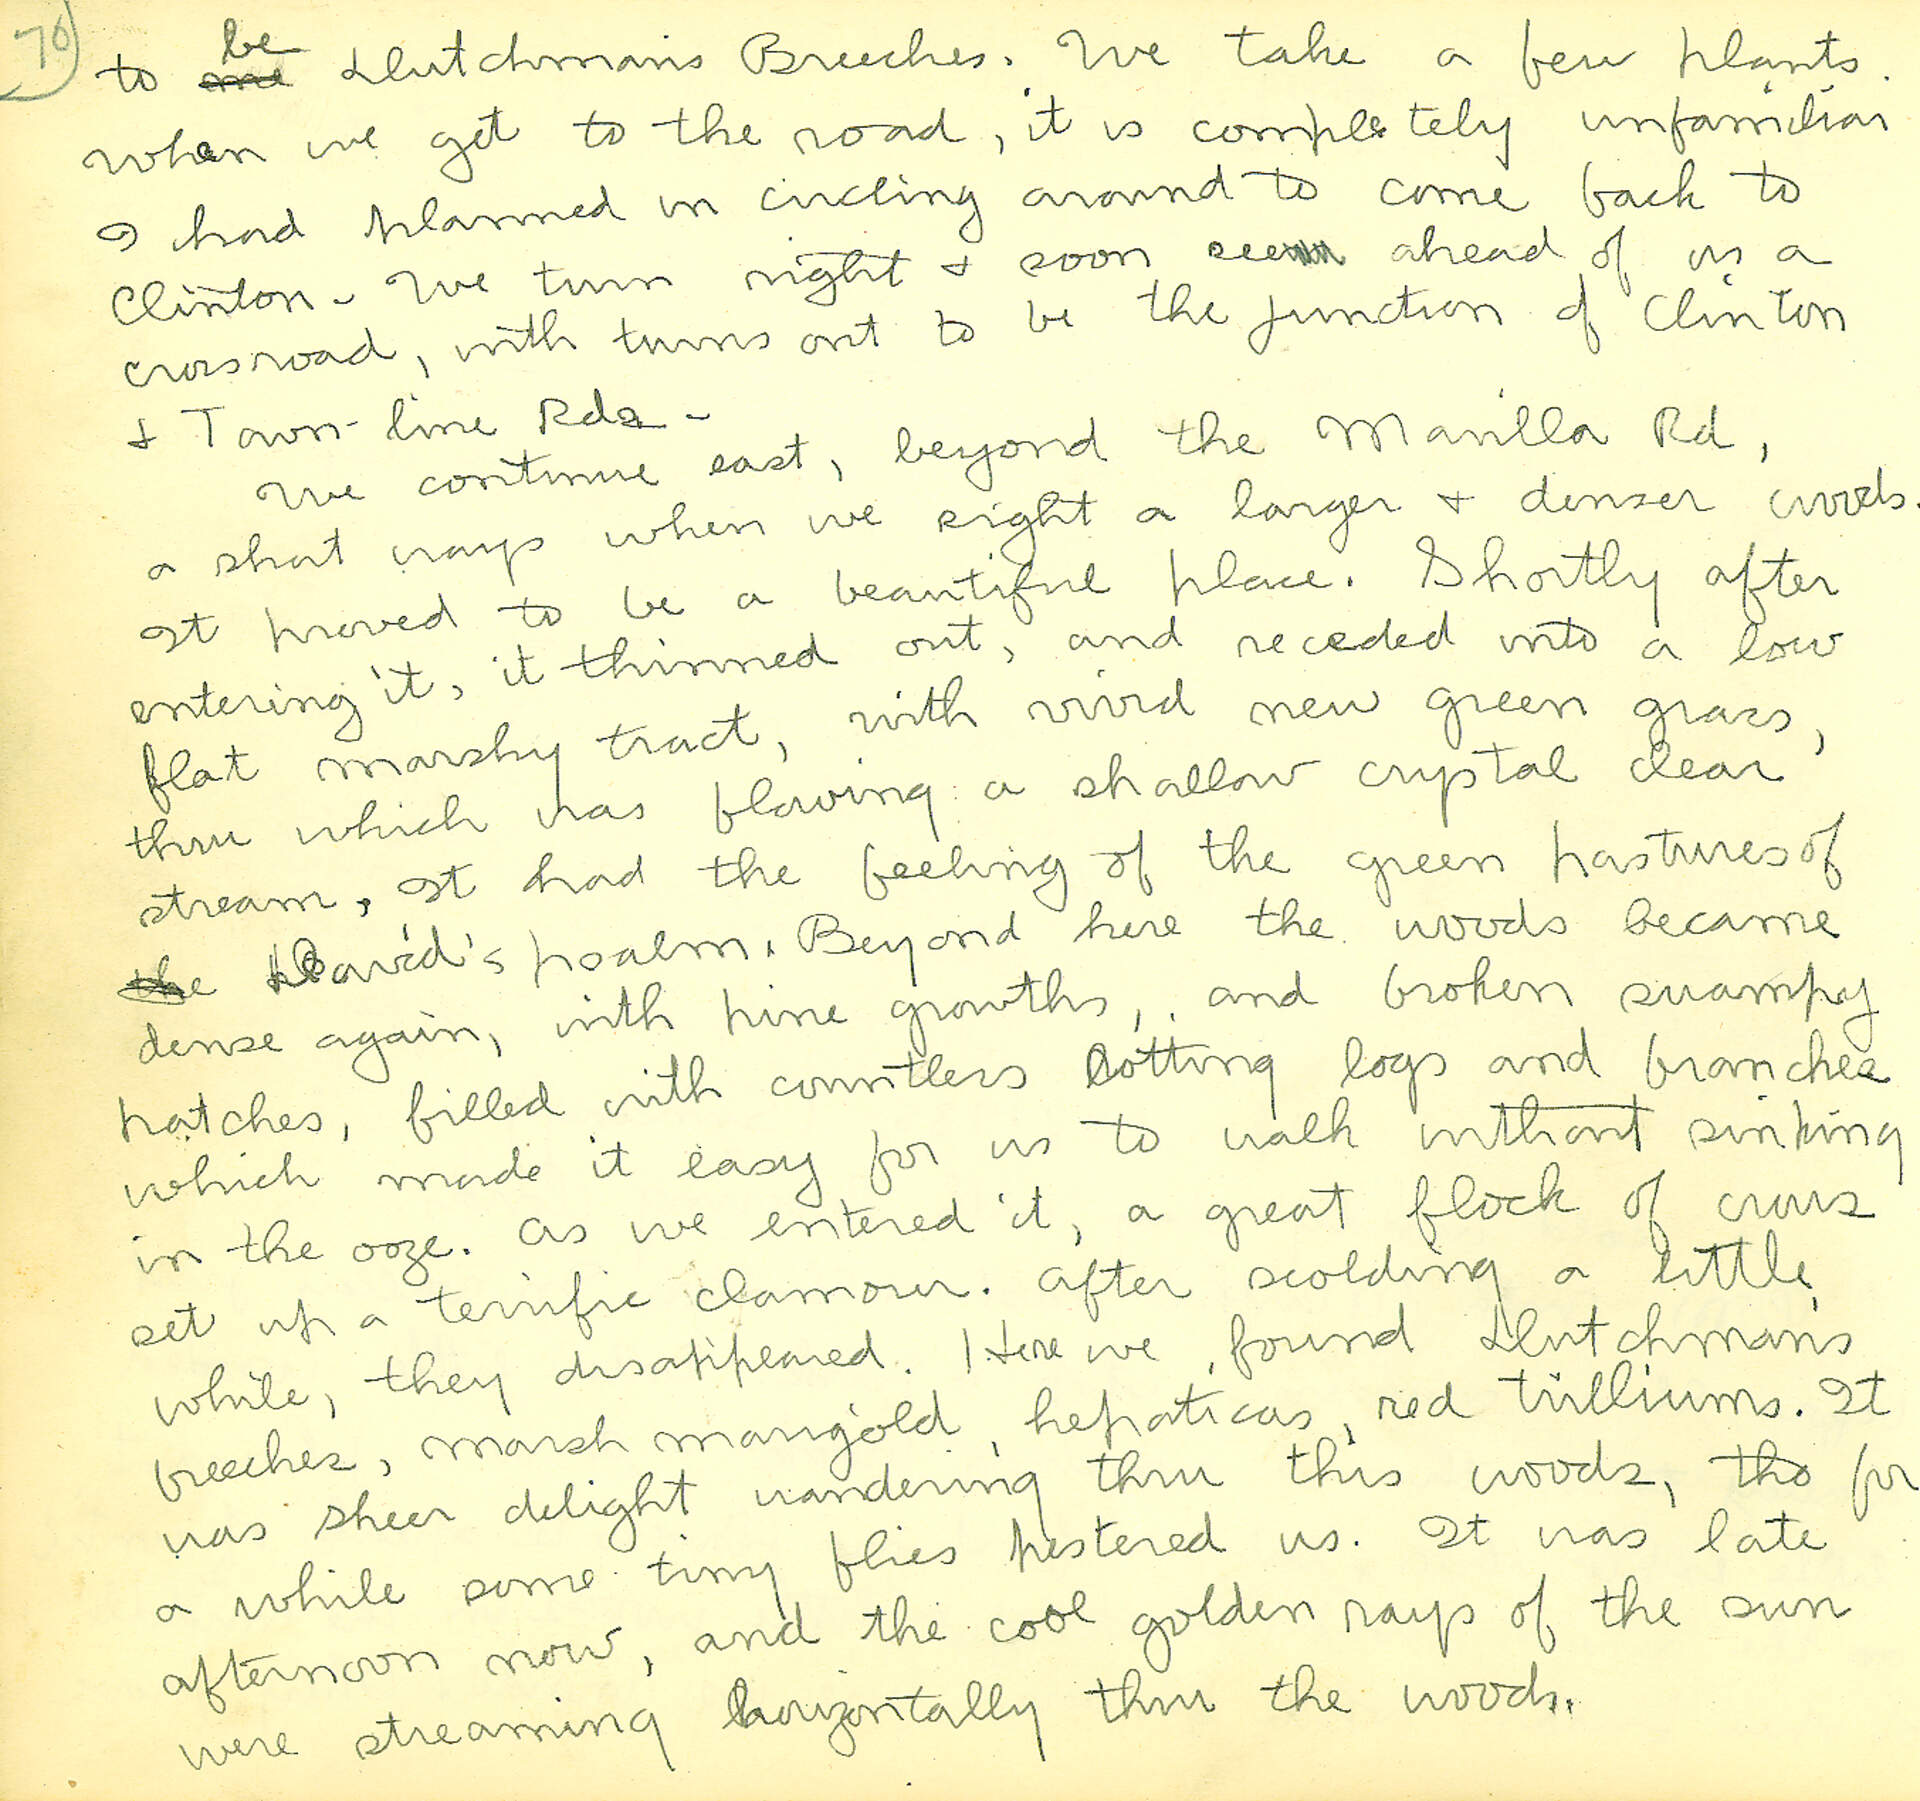 76
to me be Dutchmans Breeches. We take a few plants.
When we get to the road, it is completely unfamiliar
I had planned in circling around to come back to
Clinton - We turn right & soon see ahead of us a
crossroad, with turns out to be the junction of Clinton
& Town-line Rds -
We continue east, beyond the Marilla Rd,
a short ways when we sight a larger & denser woods.
It proved to be a beautiful place. Shortly after
entering it, it thinned out, and receded into a low
flat marshy tract, with vivid new green grass,
thru which was flowing a shallow crystal clear
stream, It had the feeling of the green pastures of
the David's psalm. Beyond here the woods became
dense again, with pine growths, and broken swampy
patches, filled with countless rotting logs and branches
which made it easy for us to walk without sinking
in the ooze. As we entered it, a great flock of crows
set up a terrific clamour. After scolding a little
while, they disappeared. Here we found Dutchmans
breeches, marsh marigold, hepaticas, red trilliums. It
was sheer delight wandering thru this woods, tho for
a while some tiny flies pestered us. It was late
afternoon now, and the cool golden rays of the sun
were streaming horizontally thru the woods.